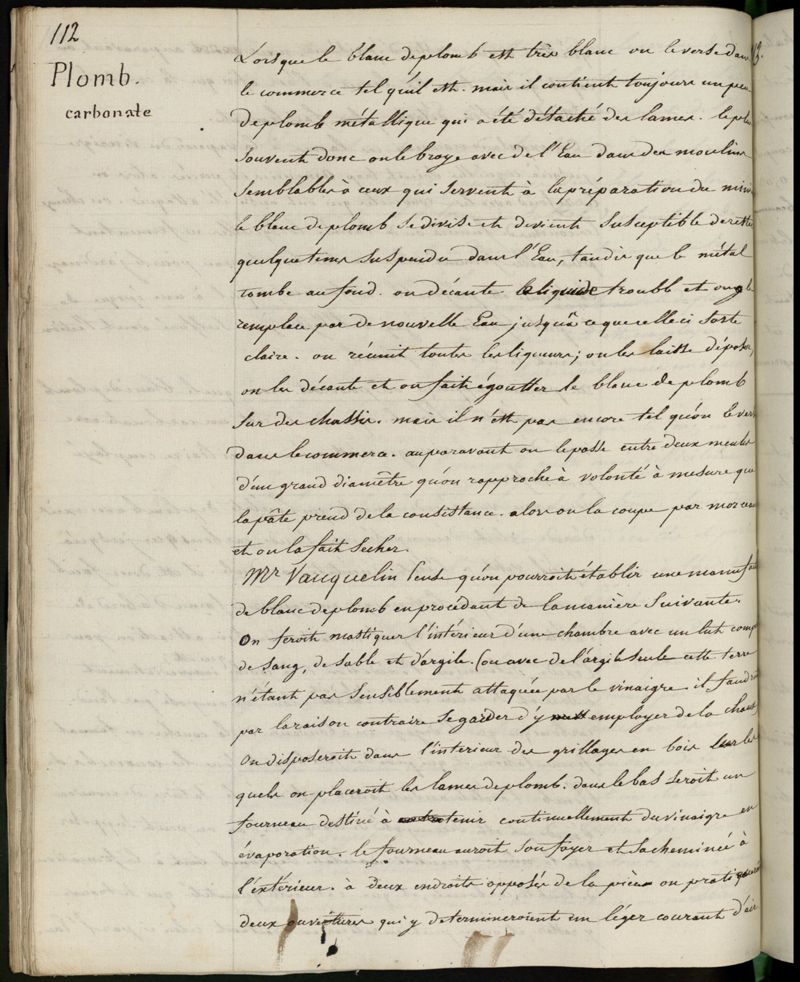 112
Plomb.
carbonate
Lorsque le blanc de plomb est très blanc on le verse dans
le commerce tel qu'il est. mais il contient toujours un peu
de plomb métallique qui a été détaché des lames. le plus
souvent donc on le broye avec de l'Eau dans des moulins
semblables à ceux qui servent à la préparation du
le blanc de plomb se divise et devient susceptible de rester
quelque tems suspendu dans l'Eau, tandis que le métal
tombe au fond. on décante le liquide troublé et on le
remplace par de nouvelle Eau jusqu'à ce que celle ci sorte
claire. on réunit toutes les liqueurs; on les laisse déposer,
on les décante et on fait égoutter le blanc de plomb
sur des chassis. mais il n'est pas encore tel qu'on le verse
dans le commerce. auparavant on le passe entre deux meules
d'un grand diamètre qu'on rapproche à volonté à mesure que
la pâte prend de la consistance. alors on la coupe par morceaux
et on la fait secher.
Mr Vauquelin pense qu'on pourroit établir une manufac
de blanc de plomb en procédant de la manière suivante.
On feroit mastiquer l'intérieur d'une chambre avec un lut comp
de sang, de sable et d'argile. (ou avec de l'argile seule cette terre
n'étant pas sensiblement attaquée par le vinaigre il faudroit
par la raison contraire se garder d'y employer de la chaux
On disposeroit dans l'interieur des grillages en bois sur les
quels on placeroit les lames de plomb. dans le bas seroit un
fourneau destiné à tenir continuellement du vinaigre en
évaporation. le fourneau auroit son foyer et sa cheminée à
l'éxtérieur. à deux endroits opposés de la pièce on pratiqueroit
deux ouvertures qui y détermineroient un léger courant d'air